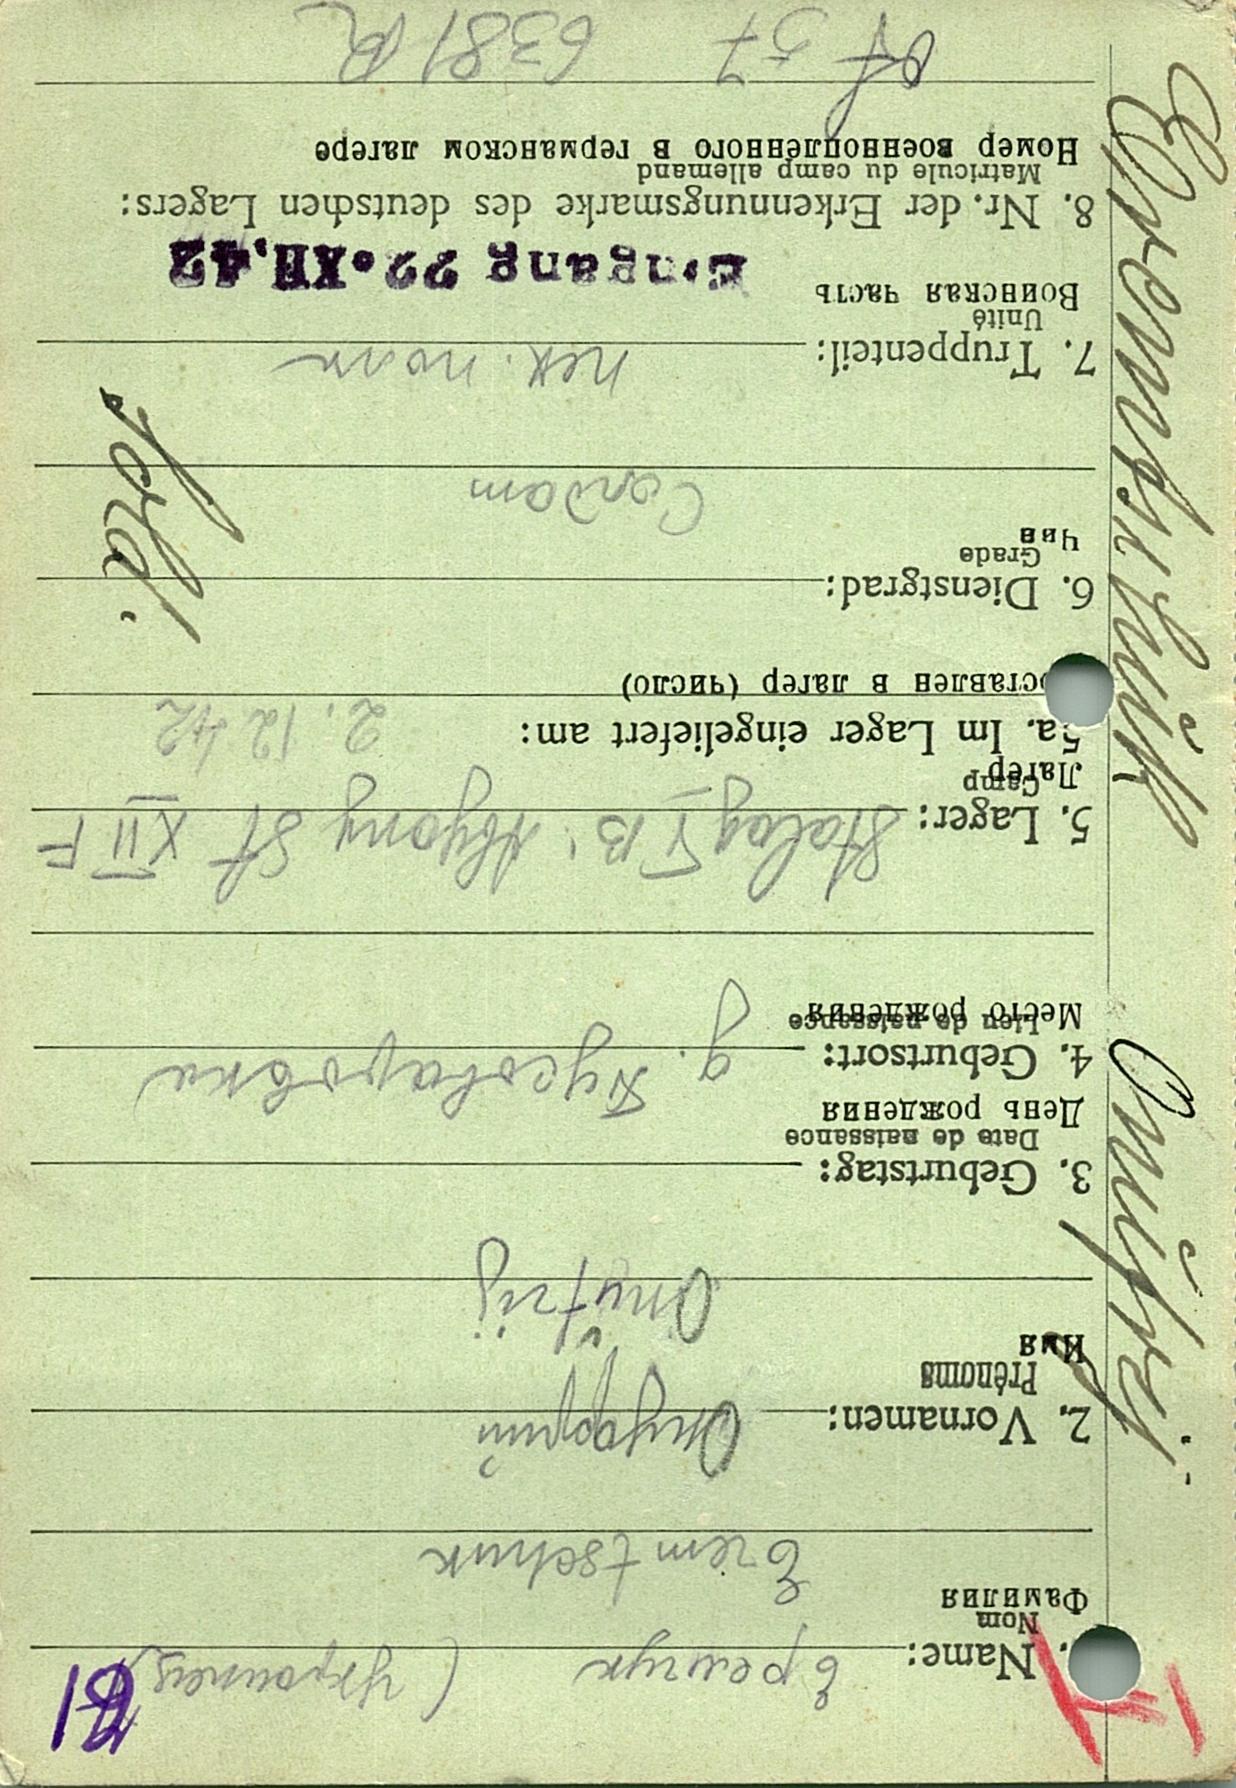 Eremtschuk Onufrej
1. Name: Еремчук (Украинец)
Nom
Фамилия
Eremtschuk
2. Vornamen: Онуфрий
Prénoms
Имя
Onufrij
3. Geburtstag:
Date de naissance
День рождения
4. Geburtsort: д.
Lieu de naissance
Место рождения
5. Lager: Stalag I B. St XII F
Camp
Лагерь
5a. Im Lager eingeliefert am: 2.12.42
оставлен в лагер (число)
6. Dienstgrad: Sold.
Grade
Чин
Солдат
7. Truppenteil:
Unité
Воинская часть
Eingang 22.XII.42
8. Nr. der Erkennungsmarke des deutschen Lagers:
Matricule du camp allemand
Номер военнопленного в германском лагере
6381